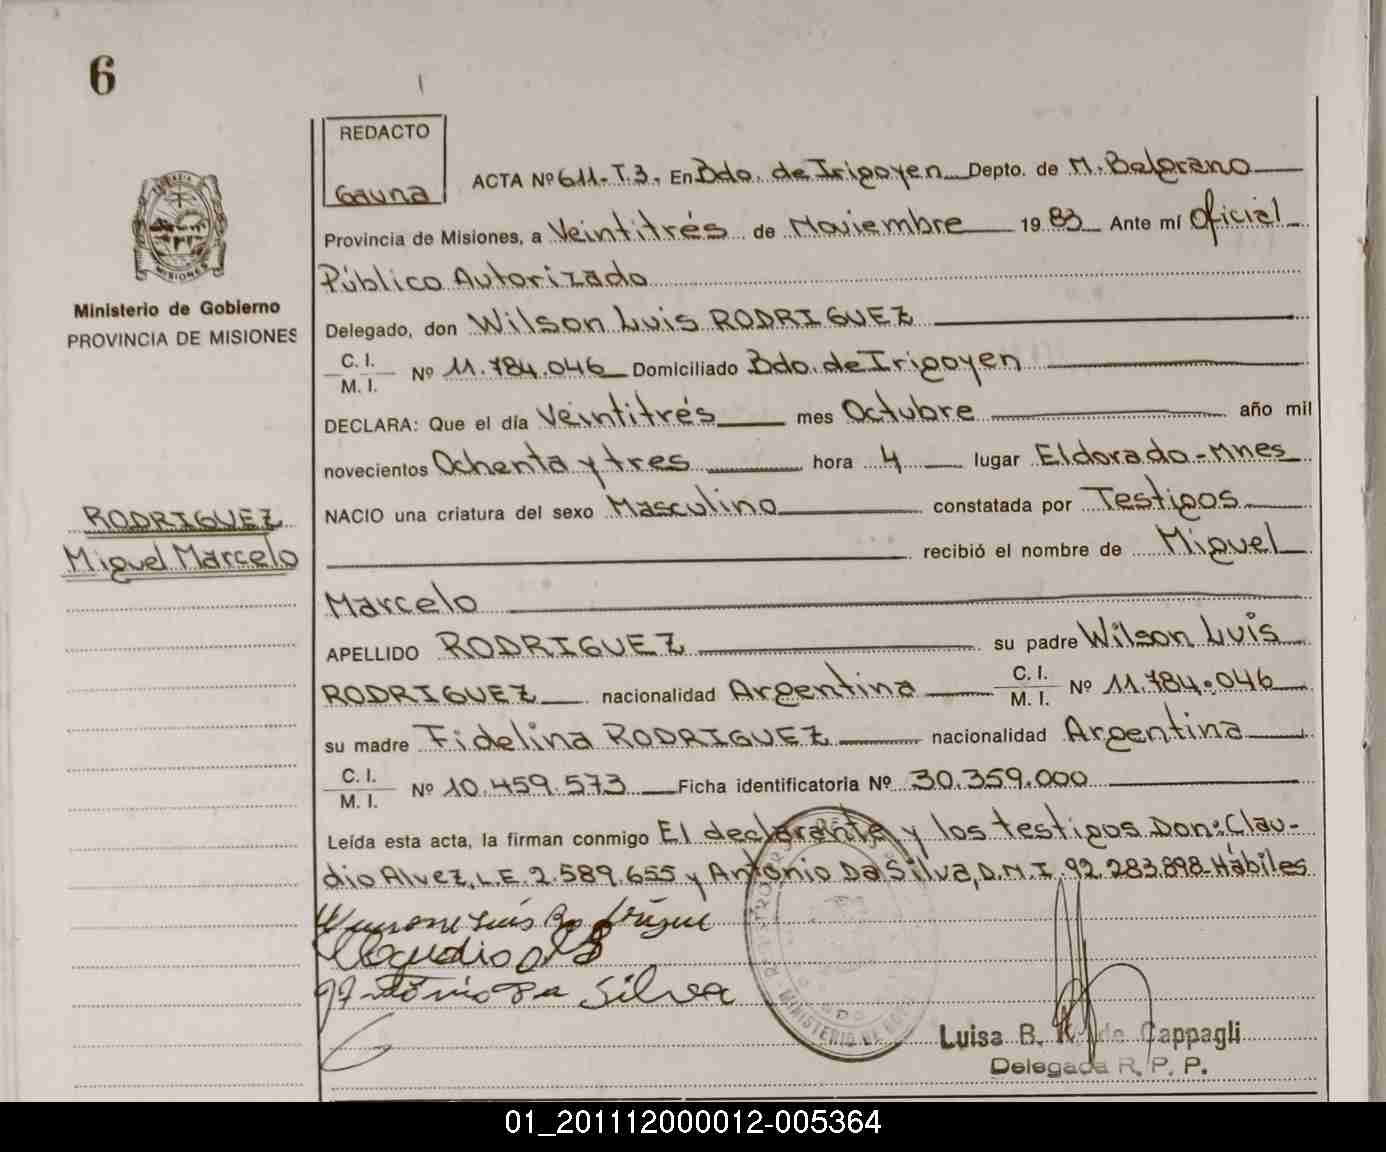 6
REDACTO
Gauna
ACTA Nº 611-T.3. En Bdo. de Irigoyen Depto. de M. Belgrano
Provincia de Misiones, a Veintitrés de Noviembre 1983 Ante mí Oficial
Público Autorizado
MISIONES
Ministerio de Gobierno
PROVINCIA DE MISIONES
Delegado, don Wilson Luis RODRIGUEZ
C. I.
M. I. Nº 11.784.046 Domiciliado Bdo. de Irigoyen
DECLARA: Que el día Veintitrés mes Octubre año mil
novecientos Ochenta y tres hora 4 lugar Eldorado-Mnes
RODRIGUEZ
Miguel Marcelo
NACIO una criatura del sexo Masculino constatada por Testigos
recibió el nombre de Miguel
Marcelo
APELLIDO RODRIGUEZ su padre Wilson Luis
RODRIGUEZ nacionalidad Argentina C. I. M. I. Nº 11.784.046
su madre Fidelina RODRIGUEZ nacionalidad Argentina
C. I.
M. I. Nº 10.459.573 Ficha identificatoria Nº 30.359.000
Leída esta acta, la firman conmigo El declarante y los testigos Don: Clau-
dio Alvez, L.E. 2.589.655 y Antonio Da Silva, D.N.I. 92.283.898-Hábiles
Claudio
Antonio Da Silva
MINISTERIO DE
Luisa B. de Cappagli
Delegada R. P. P.
01_201112000012-005364